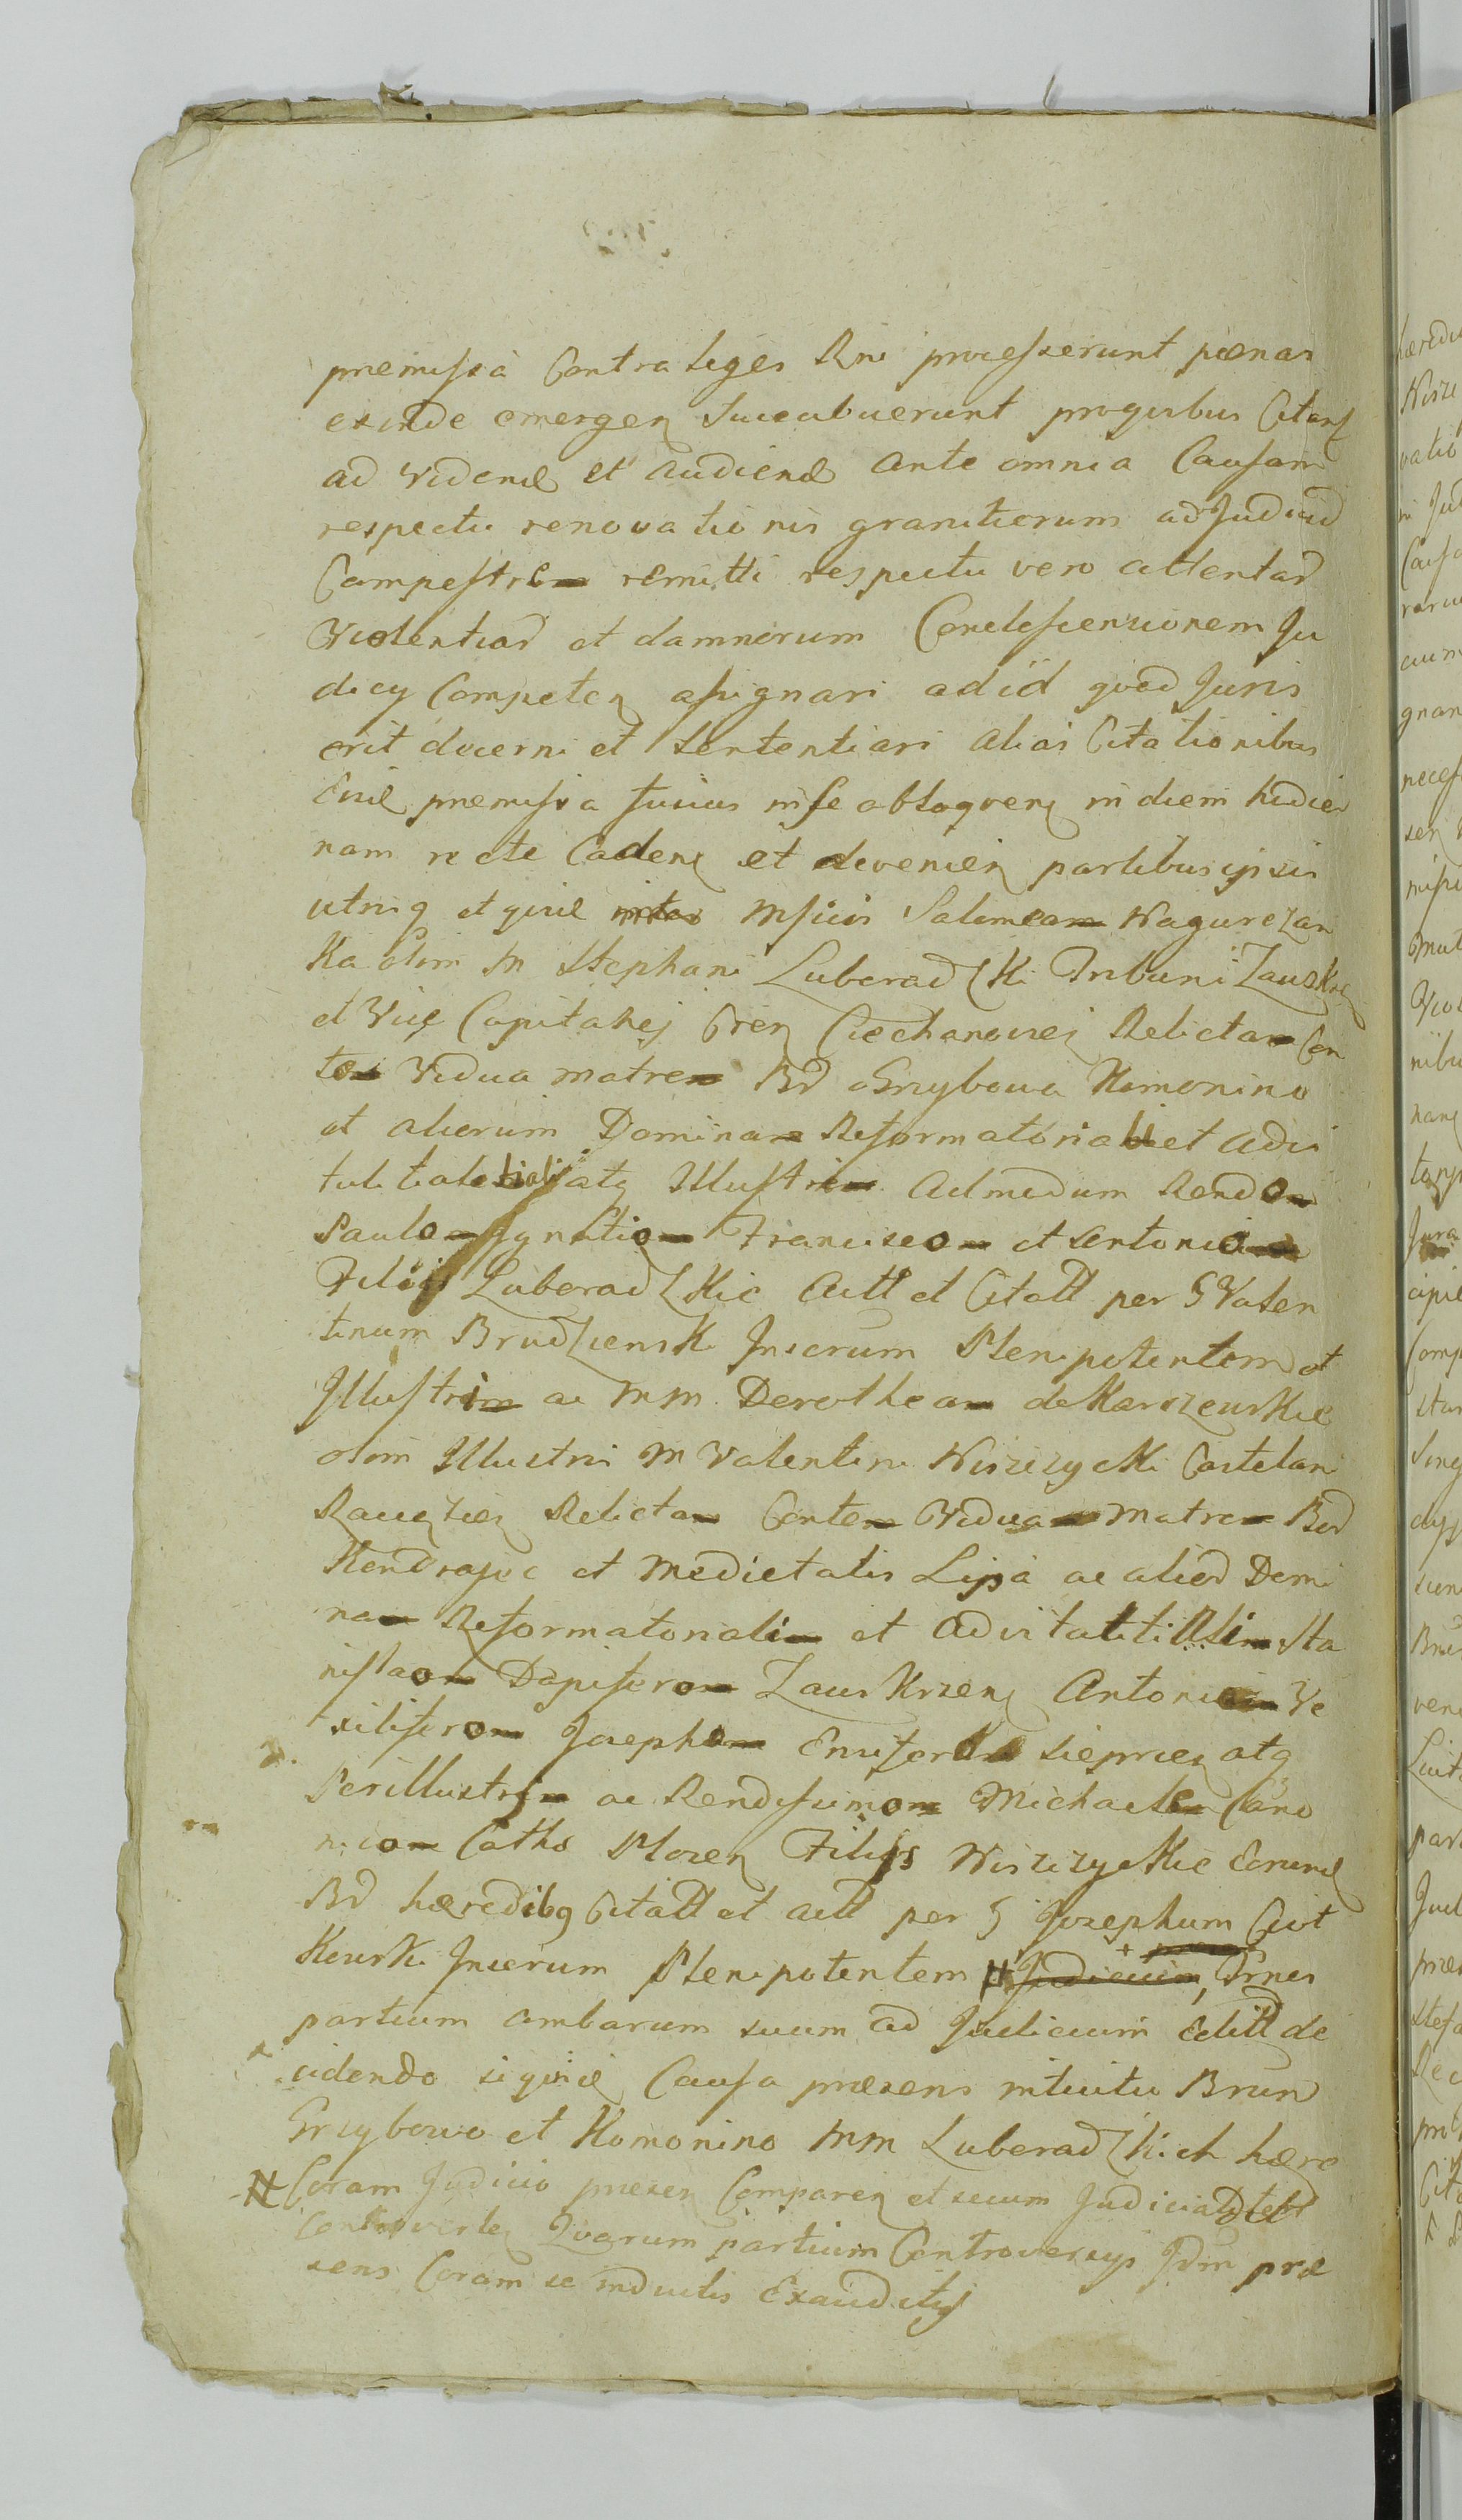 premissa Contra leges Rni processerunt poenas
exinde emergen Succubuerunt proquibus Citans
ad Vidend et Audiend Ante omnia Causam
respectu renovationis granitierum ad Judiciũ
Campestre remitti respectu vero attentaꝝ
Violentiaꝝ et damnorum Condescensionem Ju
dicy Competen assignari adid quod Juris
erit decerni et Sententiari alias Citationibus
Eiusd premissa fusius in se obloquen in diem hodier
nam recte Caden et devenien partibus ipsis
utrinq et quid Mficis Salomea Wagurczan
Ka olim M Stephani Luberadzki Tribuni Zauskrz
et Vice Capitanej Gren Ciechanovien Relicta Con
te Vidua matre Bꝝ Grzybowa Komonino
et aliorum Domina Reformatoriali et Advi
talitiali atq Illustri Admodum Rendo
Paulo Ignatio Francisco et Antonio
Filijs Luberadzkie Actt et Citatt per G Valen
tinum Brudzienski Juserum Plenipotentem et
Illustri ac MM Dorothea de Karszewskie
olim Illustri M Valentini Wiszczycki Castelani
Raugzien Relicta Conte Vidua Matre Boꝝ
Kendrasyce et Medietatis Lissa ac alioꝝ Domi
na Reformatoriali et Advitaliti Sta
nislao Dapifero Zauskrzen Antonio Ve
xilifero Josepho Ensifero Sieprcen atq
Perillustri ac Rendissimo Michaele Cano
nico Caths Plocen Filijs Wiszczyckie Eorund
Bꝝ hæredibꝰ Citatt et Actt per G Josephum Ciot
Kowski Juserum Plenipotentem # Judicium, Trnes
partium ambarum suum ad Judicium Editt de
cidendo siquid Causa præsens intuitu Bnrũ
Grzybowo et Komonino MM Luberadzkich hære
# Coram Judicio præsen Comparen et secum Judicialr
Controverten Quarum partium Controversys Jdm præ
sens Coram se inductis Exauditis